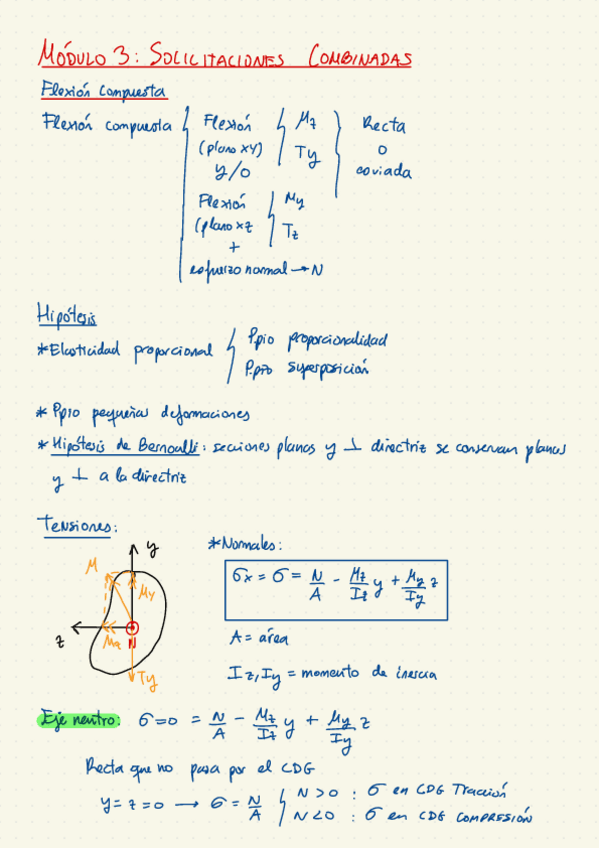 MÓDULO 3: SOLICITACIONES COMBINADAS
Flexión compuesta
Flexión compuesta { Flexión (plano xy) { Mz Ty } Recta o esviada
y/o
Flexión (plano xz { My Tz
+
esfuerzo normal → N
Hipótesis
*Elasticidad proporcional { Ppio proporcionalidad
Ppio superposición
* Ppio pequeñas deformaciones
* Hipótesis de Bernoulli: secciones planas y ⊥ directriz se conservan planas
y ⊥ a la directriz
Tensiones:
M y My z Mz N Ty
*Normales:
σx = σ = N/A - Mz/Iz y + My/Iy z
A = área
Iz, Iy = momento de inercia
Eje neutro: σ=0 = N/A - Mz/Iz y + My/Iy z
Recta que no pasa por el CDG
y = z = 0 → σ = N/A { N > 0 : σ en CDG TRACCIÓN
N < 0 : σ en CDG COMPRESIÓN